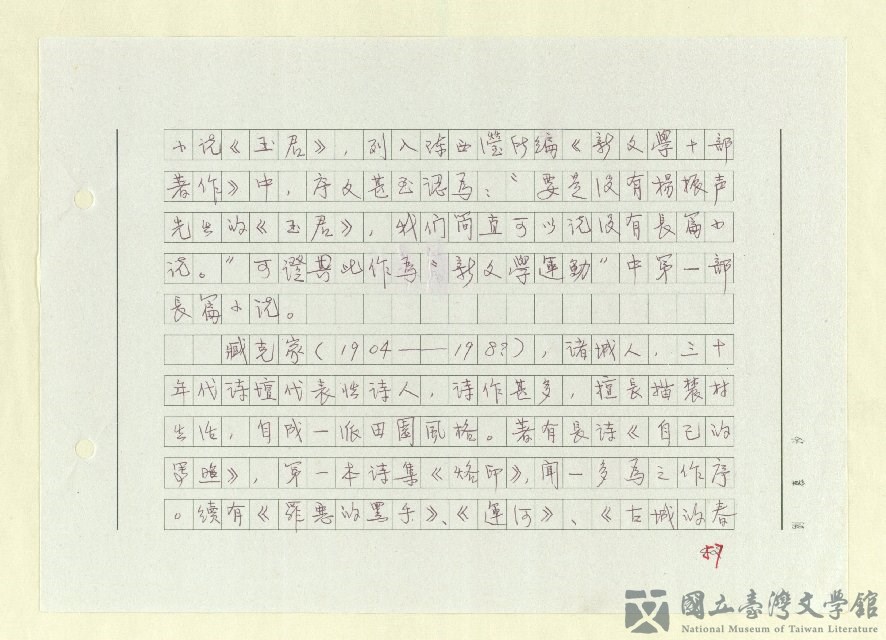 小说《玉君》,列入陈西瀅所编《新文學十部
著作》中,序文甚至認為:“要是没有楊振声
先生的《玉君》,我们简直可以说没有長篇小
说。”可證其此作為“新文學運動”中第一部
長篇小说。
臧克家(1904——198?),諸城人,三十
年代诗壇代表性诗人,诗作甚多,擅長描農村
生活,自成一派田園風格。著有長诗《自己的
寫照》,第一本诗集《烙印》,聞一多為之作序
。續有《罪惡的黑手》、《運河》、《古城的春
國立臺灣文學館
National Museum of Taiwan Literature